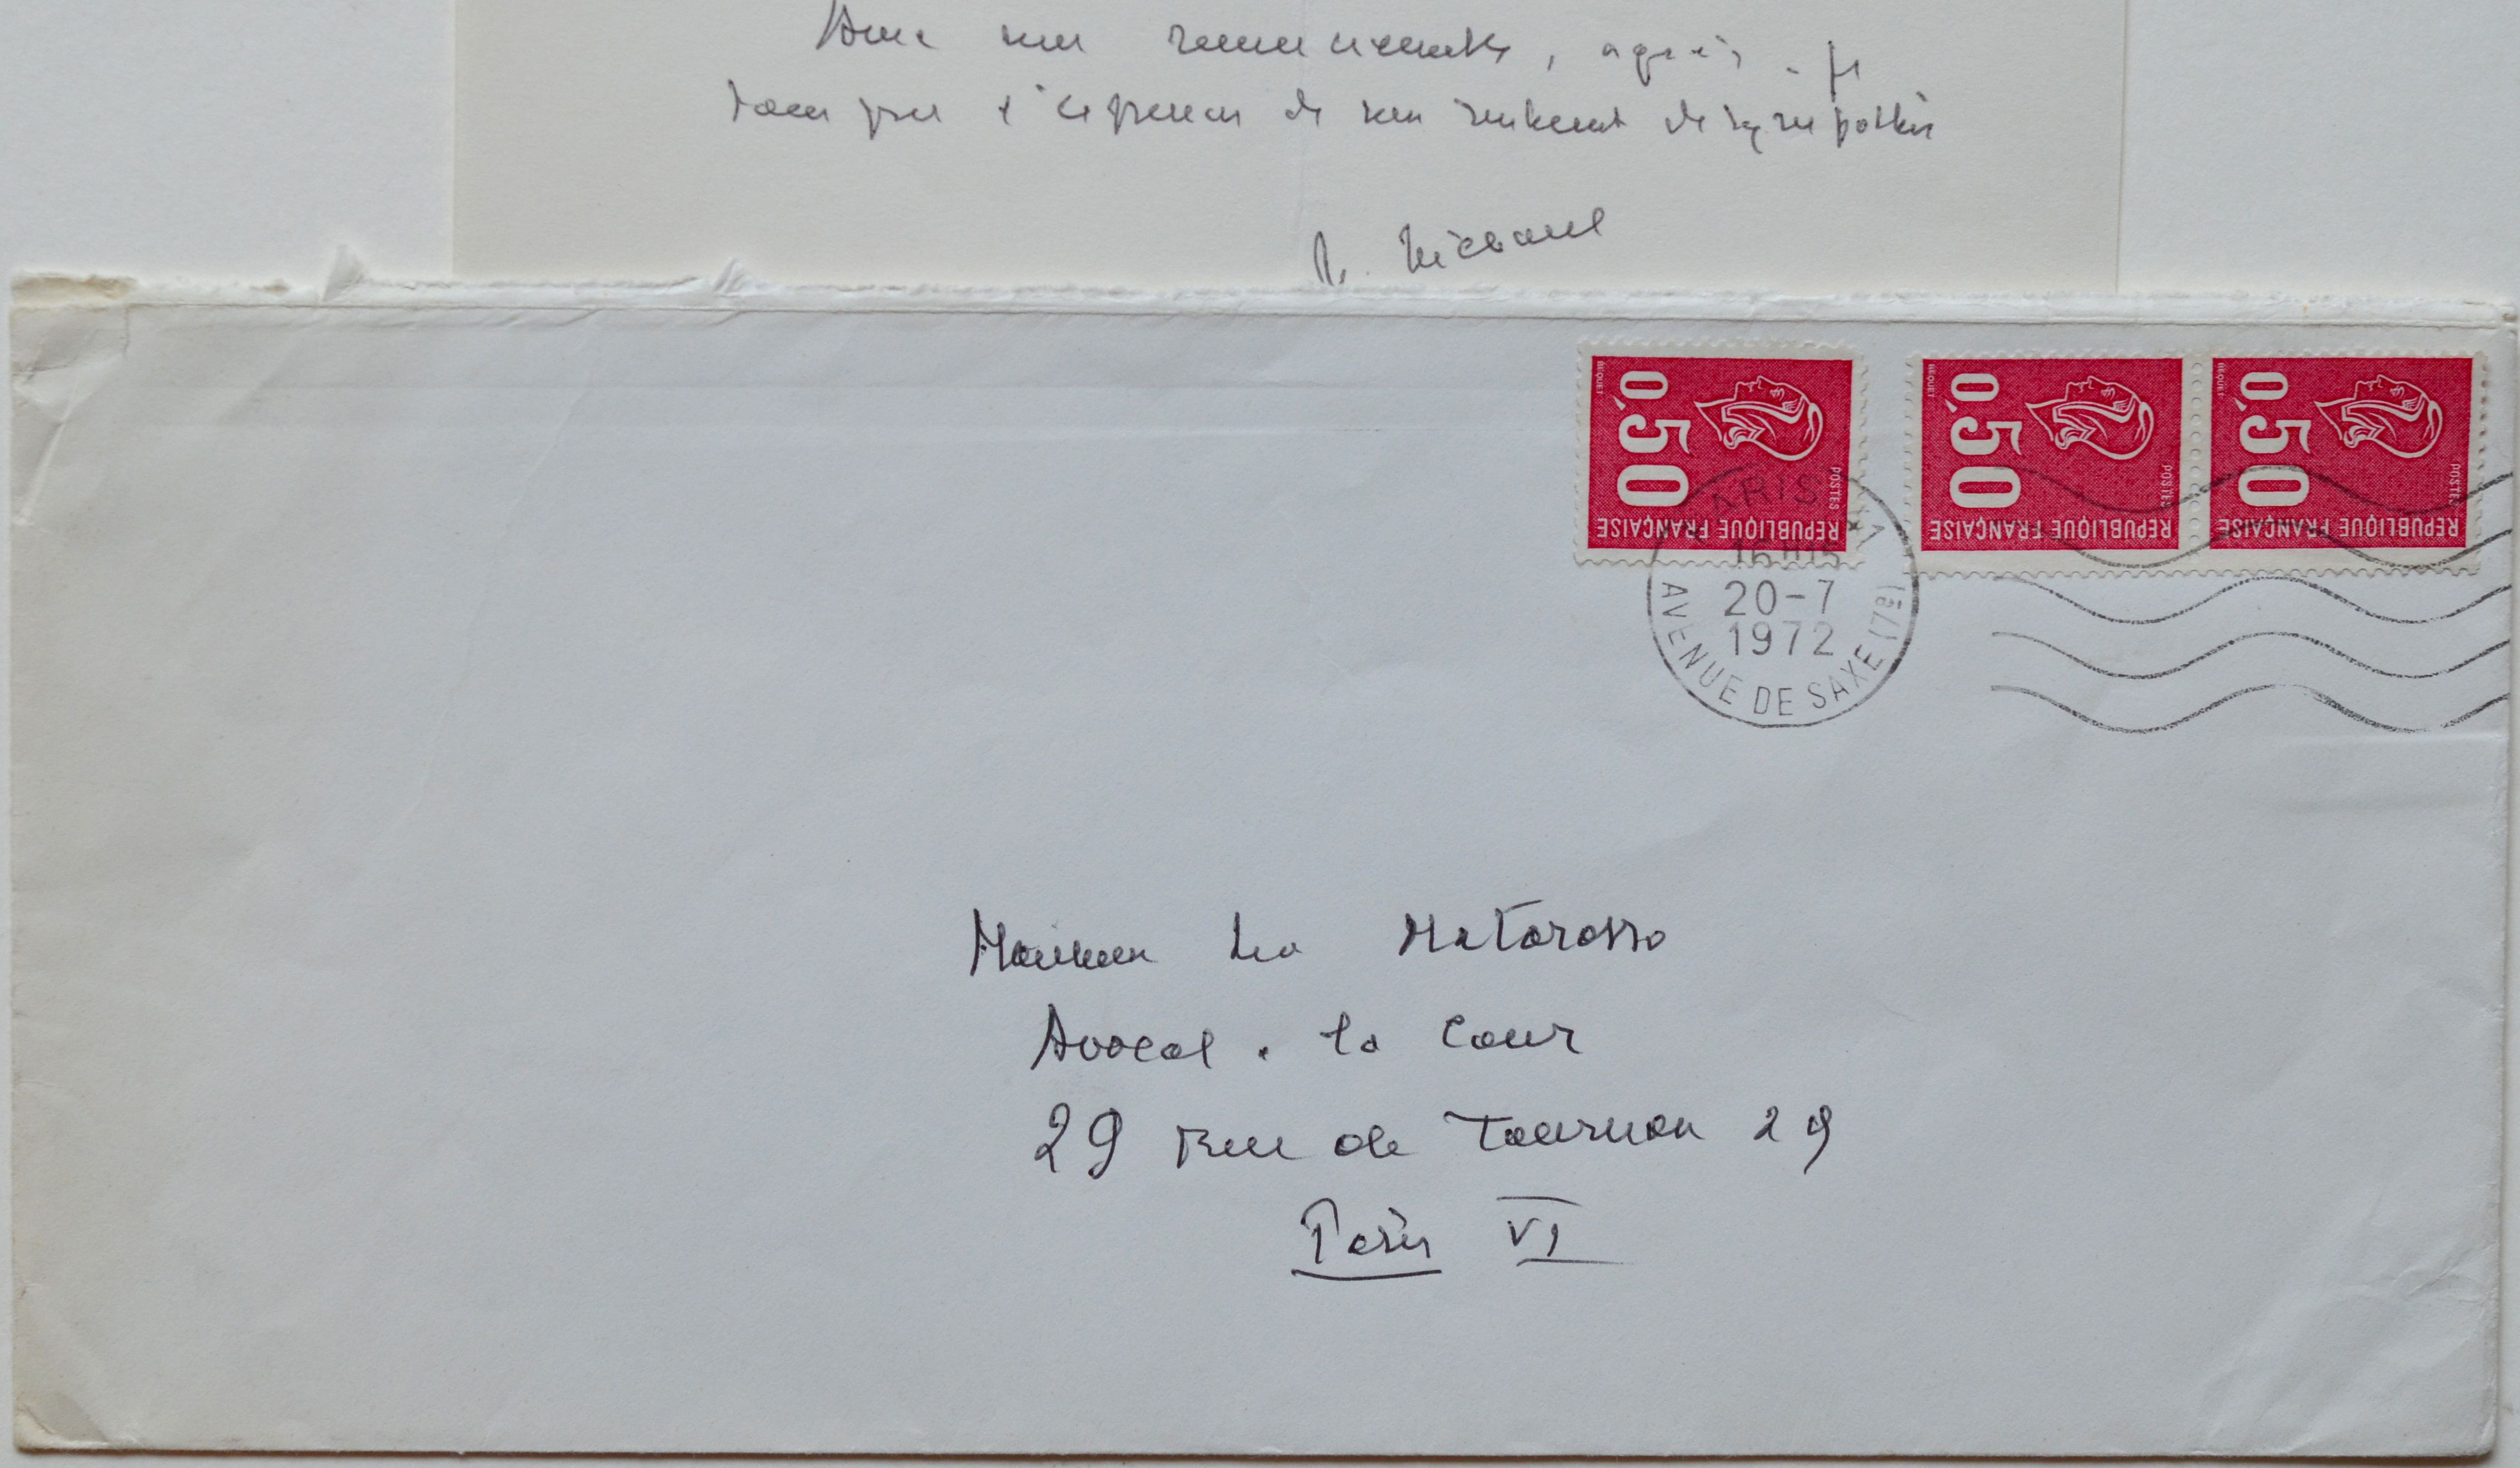 Avec mes remerciements, agréez, je
vous prie l'expression de mes sentiments de sympathie
0,50
BEQUET
POSTES
REPUBLIQUE FRANÇAISE
0,50
BEQUET
POSTES
REPUBLIQUE FRANÇAISE
0,50
BEQUET
POSTES
REPUBLIQUE FRANÇAISE
PARIS VII
16H15
20-7
1972
AVENUE DE SAXE (7e)
Monsieur Léo Matarasso
Avocat à la Cour
29 Rue de Tournon 29
Paris VI